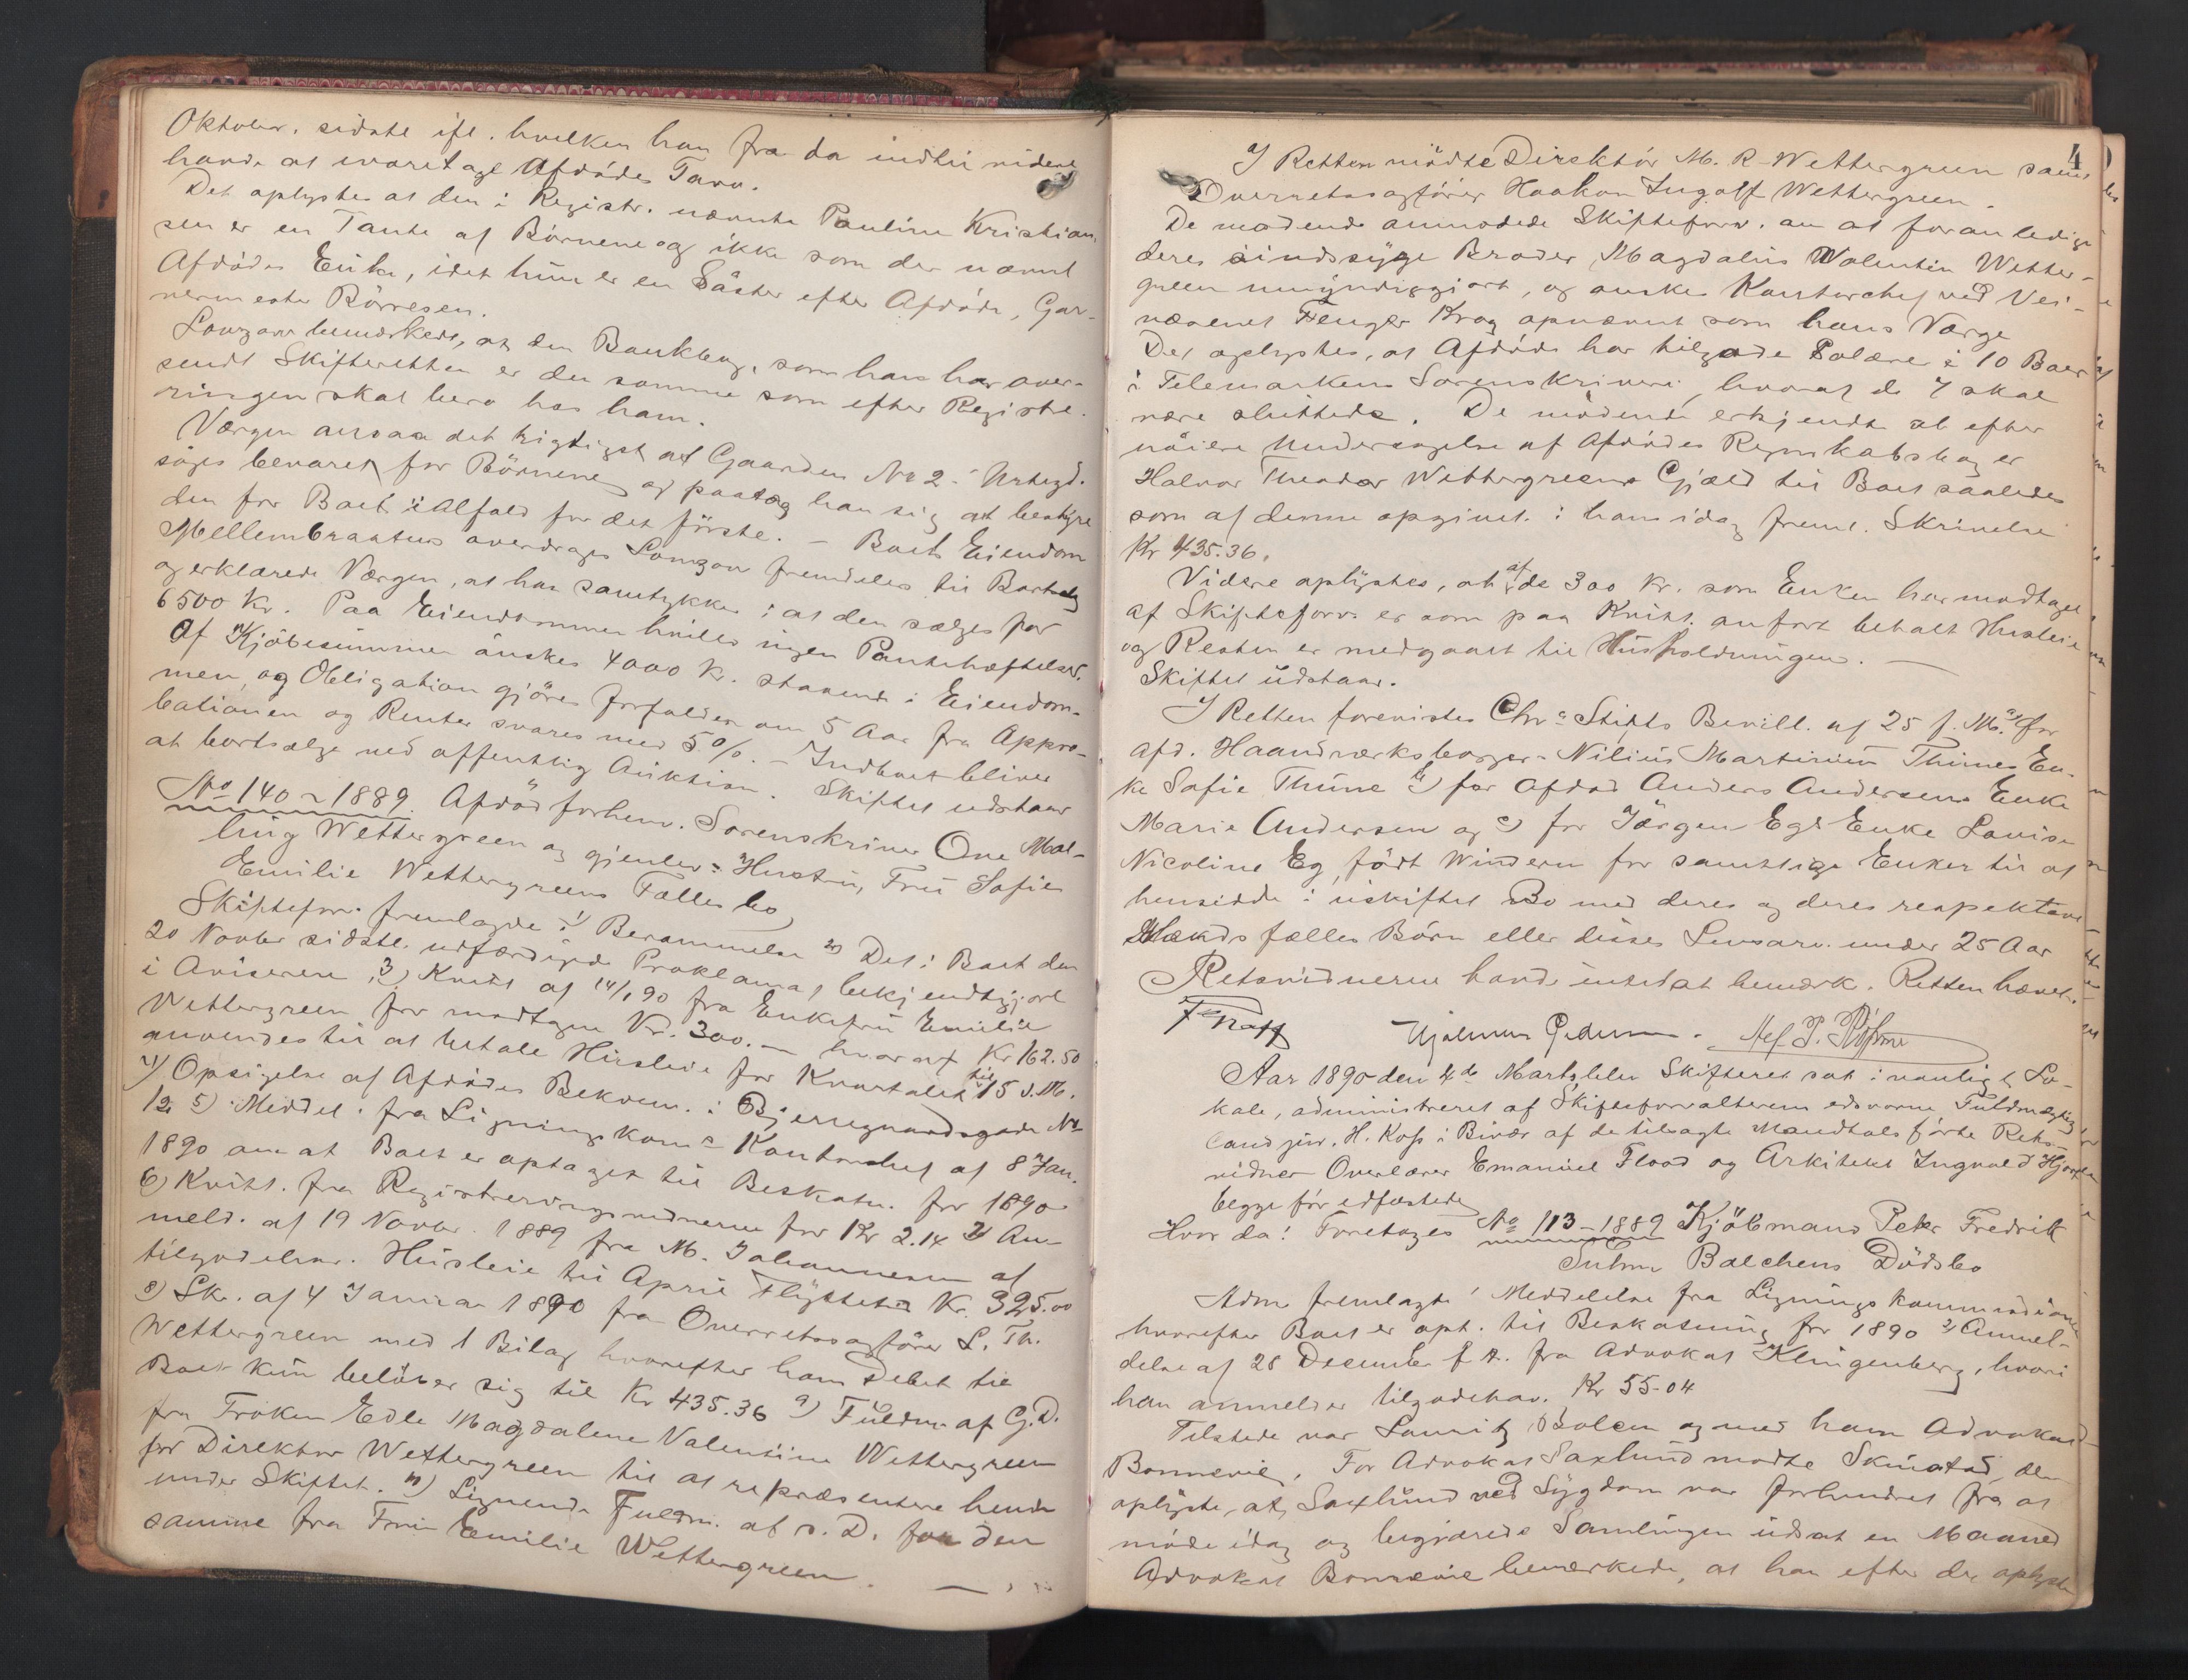 Oktober. sidste ifl. hvilken han fra da indtil videre
havde at ivaretage Afdödes Tarv.
Det oplystes at den i Registr. nævnte Pauline Kristian-
sen er en Tante af Börnene og ikke som der nævnt
Afdödes Enke, idet hun er en Söster efter Afdöde, Gar-
vermester Börresen.
bemærkede, at den Bankbog, som han har over-
sendt Skifteretten er den samme som efter Registre-
ringen skal bero hos ham.
Værgen ansaa det rigtigst at Gaarden No 2
söges bevaret for Börnene og paatog han sig at bestyre
den for Boet i Alfald for det förste. – Boets Eiendom
Mellembraaten overdrages fremdeles til
og erklærede Værgen, at han samtykker i at den sælges for
6500 Kr. Paa Eiendommen hviler ingen Pantehæftelser.
Af Kjöbesummen önskes 4000 Kr. staaende i Eiendom-
men og Obligation gjöres forfalden om 5 Aar fra Appro-
bationen og Renter svares med 5%. – Indboet bliver
at bortsælge ved offentlig Auktion. Skiftet udstaar
No 140 – 1889. Afdöd forhenv. Sorenskriver One Mal-
ling Wettergreen og gjenlev: Hustru, Fru Sofie
Emilie Wettergreens Fællesbo
Skiftefor. fremlagde 1) Berammelse 2) Det i Boet den
20 Novbr sidstl. udfærdigede Proklama, bekjendtgjort
i Aviserne, 3) Kvitt af 14/1 90 fra Enkefru Emilie
Wettergreen for modtagne Kr. 300.– hvoraf Kr 162.50
anvendes til at betale Husleie for Kvartalet til 15 d.M.
4) Opsigelse af Afdödes Bekvem. i Bjerregaardsgade No
12 5) Meddel. fra Ligningskoms Kontorchef af 8 Jan.
1890 om at Boet er optaget til Beskatn. for 1890
6) Kvitt. fra Registreringsvidnerne for Kr 2.14 7) An-
meld. af 19 Novbr. 1889 fra M. Johannesen af
tilgodehav. Husleie til April Flyttetid Kr. 325.00
8) Sk. af 4 Januar 1890 fra Overretssagförer L. Th.
Wettergreen med 1 Bilag hvorefter hans Debet til
Boet kun belöber sig til Kr 435.36 9) Fuldm af G.D.
fra Fröken Edle Magdalene Valentine Wettergreen
for Direktör Wettergreen til at repræsentere hende
under Skiftet. 10) Lignende Fuldm. af s. D. for den
samme fra Fru Emilie Wettergreen. –
4
I Retten mödte Direktör M. R. Wettergreen samt
Overretssagförer Haakon Ingolf Wettergreen.
De mödende anmodede Skifteforv. om at foranledige
deres sindssyge Broder Magdalus Valentin Wetter-
green umyndiggjort, og önskes Kontorchef ved Vei-
væsenet Fenger Krog opnævnt som hans Værge
Det oplystes, at Afdöde har tilgode Salære i 10 Boer
i Telemarkens Sorenskriveri, hvoraf de 7 skal
være sluttede. De mödende erkjendte at efter
nöiere Undersögelse af Afdödes Regnskabsbog er
Halvor Theodor Wettergreens Gjæld til Boet saaledes
som af denne opgivet i hans idag freml. Skrivelse
Kr 435.36.
Videre oplystes, at af de 300 Kr. som Enken har modtaget
af Skifteforv. er som paa Kvitt. anfört betalt Husleie
og Resten er medgaaet til Husholdningen. –
Skiftet udstaar.
I Retten forevistes Chra Stifts Bevill. af 25 f. M. a) for
afd. Haandværksborger Nilius Martinius Thunes En-
ke Sofie Thune b) for afdöd Anders Andersens Enke
Marie Andersen og c) for Jörgen Egs Enke Lovise
Nicoline Eg, födt Windern for samtlige Enker til at
hensidde i uskiftet Bo med deres og deres respektive
Mænds fælles Börn eller disses Livsarv. under 25 Aar
Retsvidnerne havde intet at bemærk. Retten hævet.
Hjalmar Pedersen.
Aar 1890 den 4de Marts blev Skifteret sat i vanligt Lo-
kale, administreret af Skifteforvalterens edsvorne Fuldmægtig
cand jur. H. Koss i Bivær af de tilsagte Mandtalsförte Rets-
vidner Overlærer Emanuel Flood og Arkitekt Ingvald Hjorth
begge för edfæstede
Hvor da: Foretoges No 113 – 1889 Kjöbmand Peter Fredrik
Suhm Balchens Dödsbo
Adm fremlagte 1 Meddelelse fra Ligningskommissionen
hvorefter Boet er opt. til Beskatning for 1890 2) Anmel-
delse af 28 December f A. fra Advokat Klingenberg, hvori
han anmelder tilgodehav. Kr 55-04
Tilstede var Lauritz Bolsen og med ham Advokat
Bonnevie. For Advokat Saxlund mödte Skuestad, der
oplyste, at Saxlund ved Sygdom var forhindret fra at
möde idag og begjærede Samlingen udsat en Maaned
Advokat Bonnevie bemærkede, at han efter de oplyste